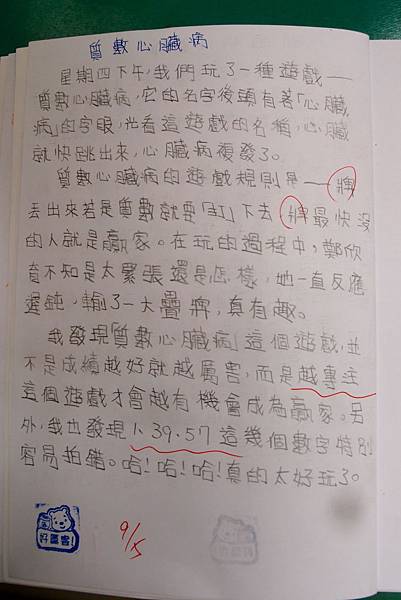 質數心臟病
星期四下午,我們玩了一種遊戲──
質數心臟病,它的名字後頭有著「心臟
病」的字眼,光看這遊戲的名稱,心臟
就快跳出來,心臟病複發了。
質數心臟病的遊戲規則是──牌
丟出來若是質數就要「缸」下去,牌最快沒
的人就是贏家。在玩的過程中,鄭欣
育不知是太緊張還是怎樣,她一直反應
遲鈍,輸了一大疊牌,真有趣。
我發現「質數心臟病」這個遊戲,並
不是成績越好就越厲害,而是越專注
這個遊戲才會越有機會成為贏家。另
外,我也發現1、39、57這幾個數字特別
容易拍錯。哈!哈!哈!真的太好玩了。
好厲害!
9/5